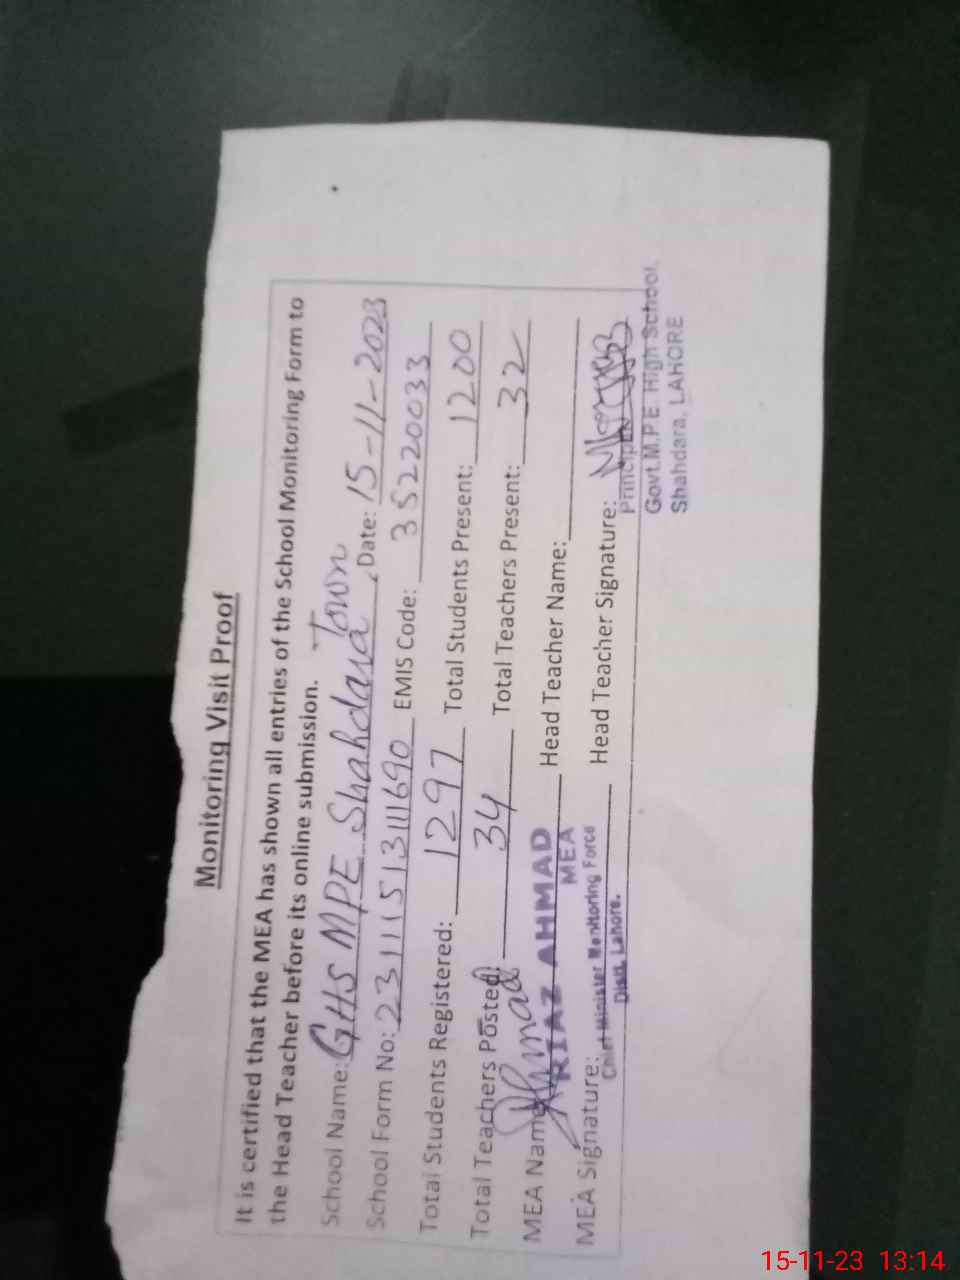 Monitoring Visit Proof
It is certified that the MEA has shown all entries of the School Monitoring Form to
the Head Teacher before its online submission.
School Name: GHS MPE Shahdara Town, Date: 15-11-2023
School Form No: 231115131111690 EMIS Code: 35220033
Total Students Registered: 1297 Total Students Present: 1200
Total Teachers Posted: 34 Total Teachers Present: 32
MEA Name: Ahmad Head Teacher Name:
RIAZ AHMAD
MEA
MEA Signature: Head Teacher Signature:
Chief Minister Monitoring Force
Distt. Lahore.
Principal
Govt.M.P.E. High School,
Shahdara, LAHORE
15-11-23 13:14